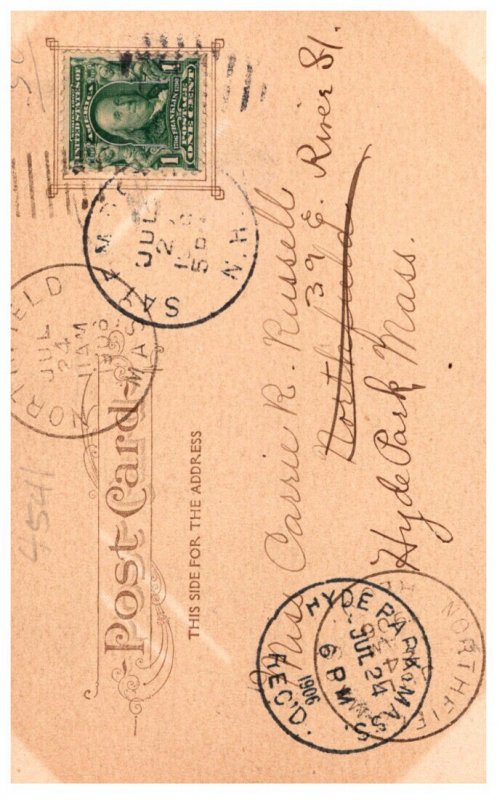 Post Card
THIS SIDE FOR THE ADDRESS
UNITED STATES OF AMERICA
1706 FRANKLIN 1790
POSTAGE
1 1
ONE CENT
JUL
5 P
N.H.
NORTHFIELD
JUL
24
11 AM
MASS.
4541
Miss Carrie R. Russell
39 E. River St.
Northfield
Hyde Park Mass.
HYDE PARK MASS.
JUL 24
6 PM
1906
REC'D.
NORTHFIE